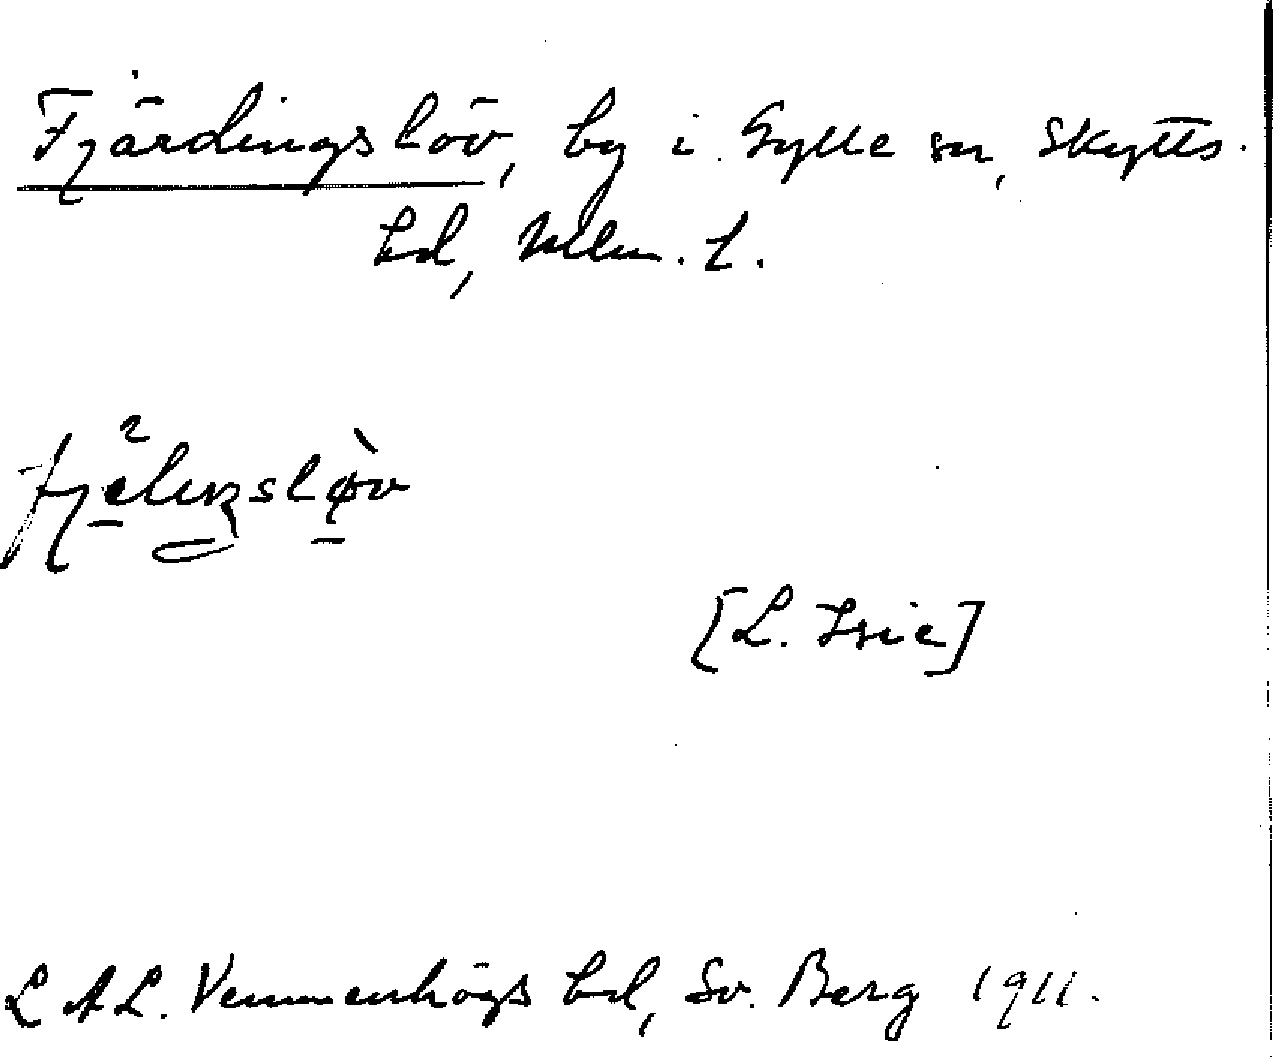 Fjärdingslöv, by i Gylle sn, Skytts
hd, Mlm. l.
fjelingsløv
[L. Isie]
LAL. Vemmenhögs hd, Sv. Berg 1911.